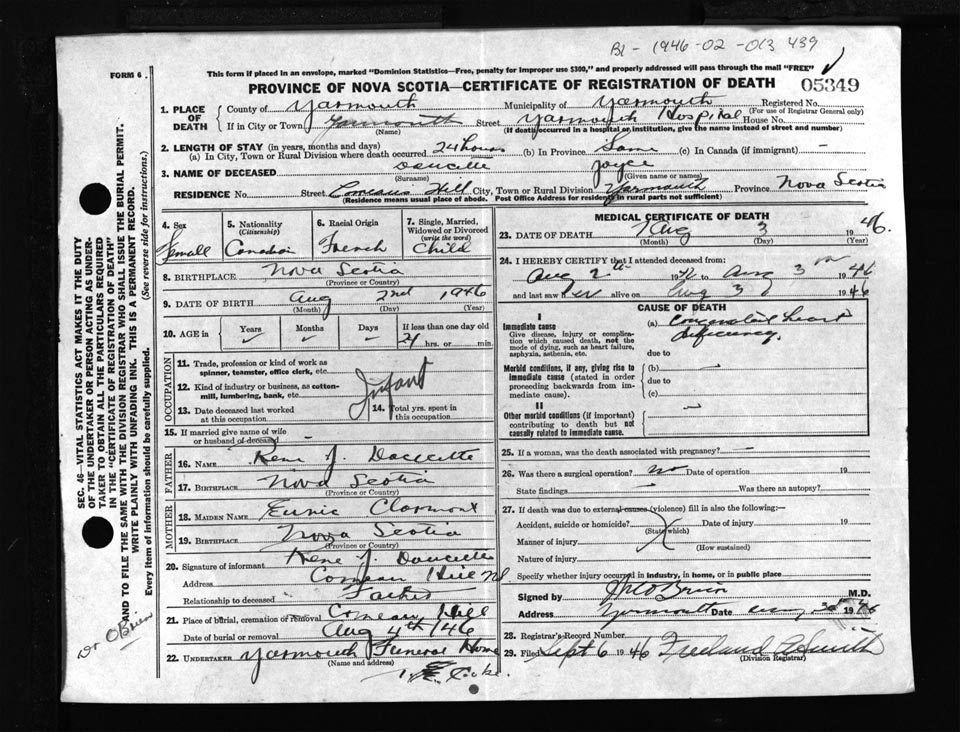 B1- 1946-02-013 439
FORM 6.
This form if placed in an envelope, marked "Dominion Statistics—Free, penalty for improper use $300," and properly addressed will pass through the mail "FREE"
PROVINCE OF NOVA SCOTIA—CERTIFICATE OF REGISTRATION OF DEATH 05349
1. PLACE OF DEATH { County of Yarmouth Municipality of Yarmouth Registered No.
(For use of Registrar General only)
If in City or Town Yarmouth Street Yarmouth Hospital House No.
(Name) (If death occurred in a hospital or institution, give the name instead of street and number)
2. LENGTH OF STAY (in years, months and days)
(a) In City, Town or Rural Division where death occurred 24 hours (b) In Province Same (c) In Canada (if immigrant) —
3. NAME OF DECEASED Doucette Joyce
(Surname) (Given name or names)
RESIDENCE No. Street Comeaus Hill City, Town or Rural Division Yarmouth Province Nova Scotia
(Residence means usual place of abode. Post Office Address for residents in rural parts not sufficient)
4. Sex
Female
5. Nationality
(Citizenship)
Canadian
6. Racial Origin
French
7. Single, Married, Widowed or Divorced
(write the word)
Child
8. BIRTHPLACE Nova Scotia
(Province or Country)
9. DATE OF BIRTH Aug 2nd 1946
(Month) (Day) (Year)
10. AGE in { Years Months Days If less than one day old
hrs. or min.
OCCUPATION
11. Trade, profession or kind of work as spinner, teamster, office clerk, etc.
12. Kind of industry or business, as cotton-mill, lumbering, bank, etc.
Infant
13. Date deceased last worked at this occupation
14. Total yrs. spent in this occupation
15. If married give name of wife or husband of deceased
FATHER
16. NAME Rene J. Doucette
17. BIRTHPLACE Nova Scotia
(Province or Country)
MOTHER
18. MAIDEN NAME Clermont
19. BIRTHPLACE Nova Scotia
(Province or Country)
20. Signature of informant Rene J. Doucette
Address Comeau Hill NS
Relationship to deceased Father
21. Place of burial, cremation or removal Comeau Hill
Date of burial or removal Aug 4th/46
22. UNDERTAKER Yarmouth Funeral Home
(Name and address)
MEDICAL CERTIFICATE OF DEATH
23. DATE OF DEATH Aug 3 1946.
(Month) (Day) (Year)
24. I HEREBY CERTIFY that I attended deceased from:
Aug 2 to Aug 3 1946
and last saw her alive on Aug 3 1946
CAUSE OF DEATH
I
Immediate cause
Give disease, injury or complication which caused death, not the mode of dying, such as heart failure, asphyxia, asthenia, etc.
(a) Congenital heart
deficiency.
due to
Morbid conditions, if any, giving rise to immediate cause (stated in order proceeding backwards from immediate cause).
(b)
due to
(c)
II
Other morbid conditions (if important) contributing to death but not causally related to immediate cause.
25. If a woman, was the death associated with pregnancy? —
26. Was there a surgical operation? no Date of operation 19
State findings Was there an autopsy?
27. If death was due to external causes (violence) fill in also the following:—
Accident, suicide or homicide? Date of injury 19
(State which)
Manner of injury
(How sustained)
Nature of injury
Specify whether injury occurred in industry, in home, or in public place
Signed by O'Brien M.D.
Address Yarmouth 1946
28. Registrar's Record Number
29. Filed Sept 6 1946 Freeland Smith
(Division Registrar)
SEC. 46—VITAL STATISTICS ACT MAKES IT THE DUTY
OF THE UNDERTAKER OR PERSON ACTING AS UNDER-
TAKER TO OBTAIN ALL THE PARTICULARS REQUIRED
IN THE "CERTIFICATE OF REGISTRATION OF DEATH"
AND TO FILE THE SAME WITH THE DIVISION REGISTRAR WHO SHALL ISSUE THE BURIAL PERMIT.
WRITE PLAINLY WITH UNFADING INK. THIS IS A PERMANENT RECORD.
Every item of information should be carefully supplied. (See reverse side for instructions.)
Dr O'Brien